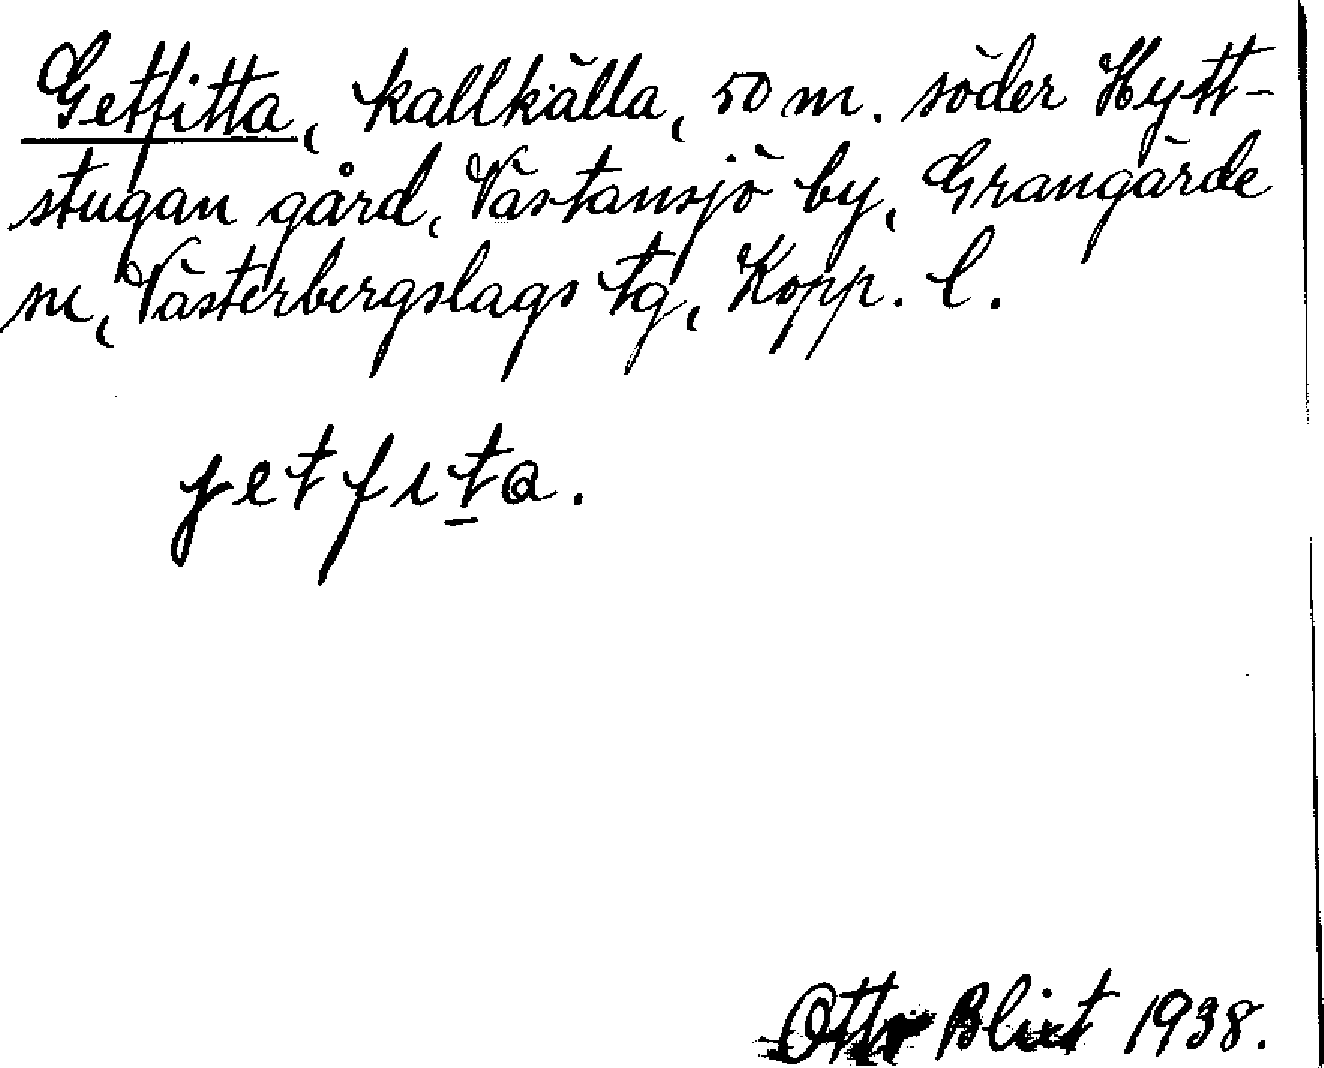 Getfitta, kallkälla, 50 m. söder Hytt-
stugan gård, Västansjö by, Grangärde
sn, Västerbergslags tg, Kopp. l.
jetfıta.
Otto Blixt 1938.